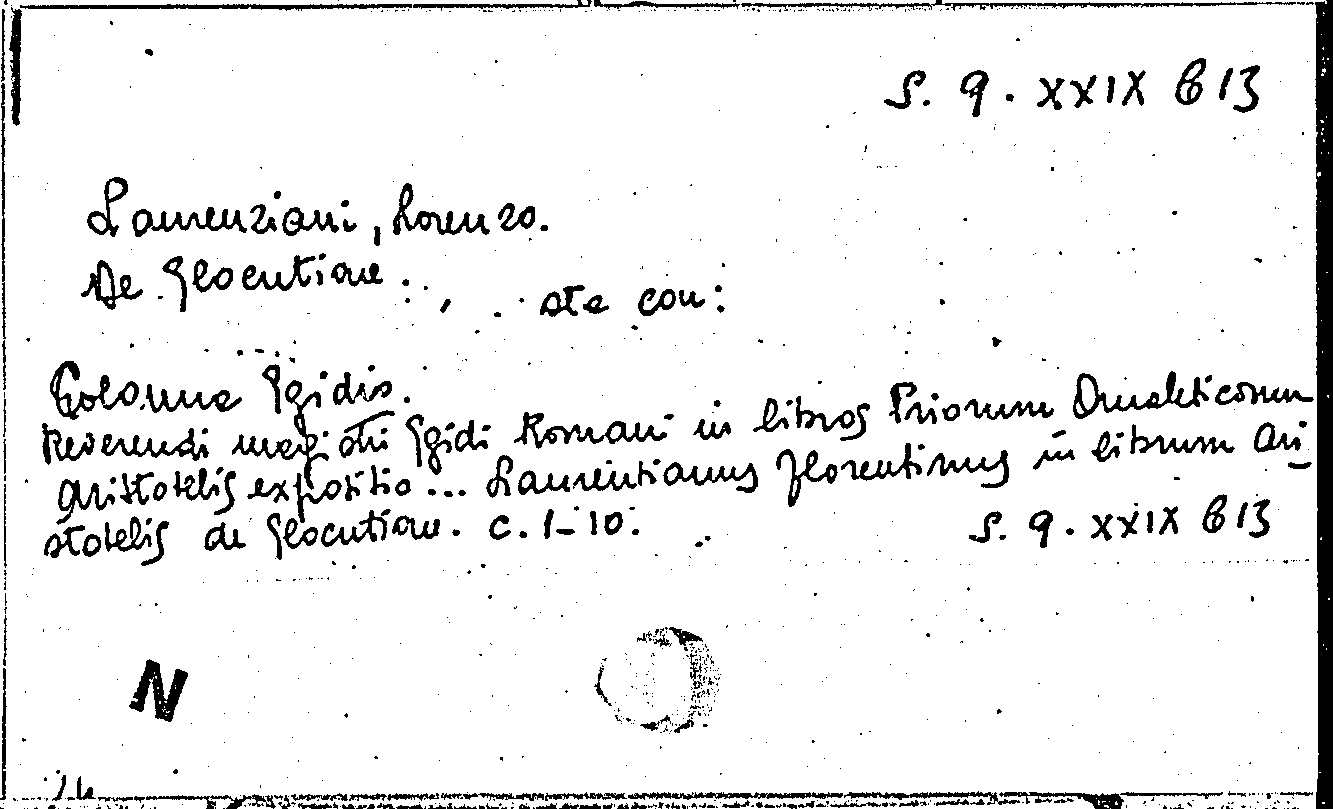 S. Q. XXIX B 13
Laurenziani, Lorenzo.
De Elocutione ..
sta con:
Colonna Egidio.
Reverendi magistri Egidi Romani in libros Priorum Analeticorum
Aristotelis expositio ... Laurentianus florentinus in librum Ari_
stotelis de Elocutione. c. 1-10.
S. Q. XXIX B 13
N